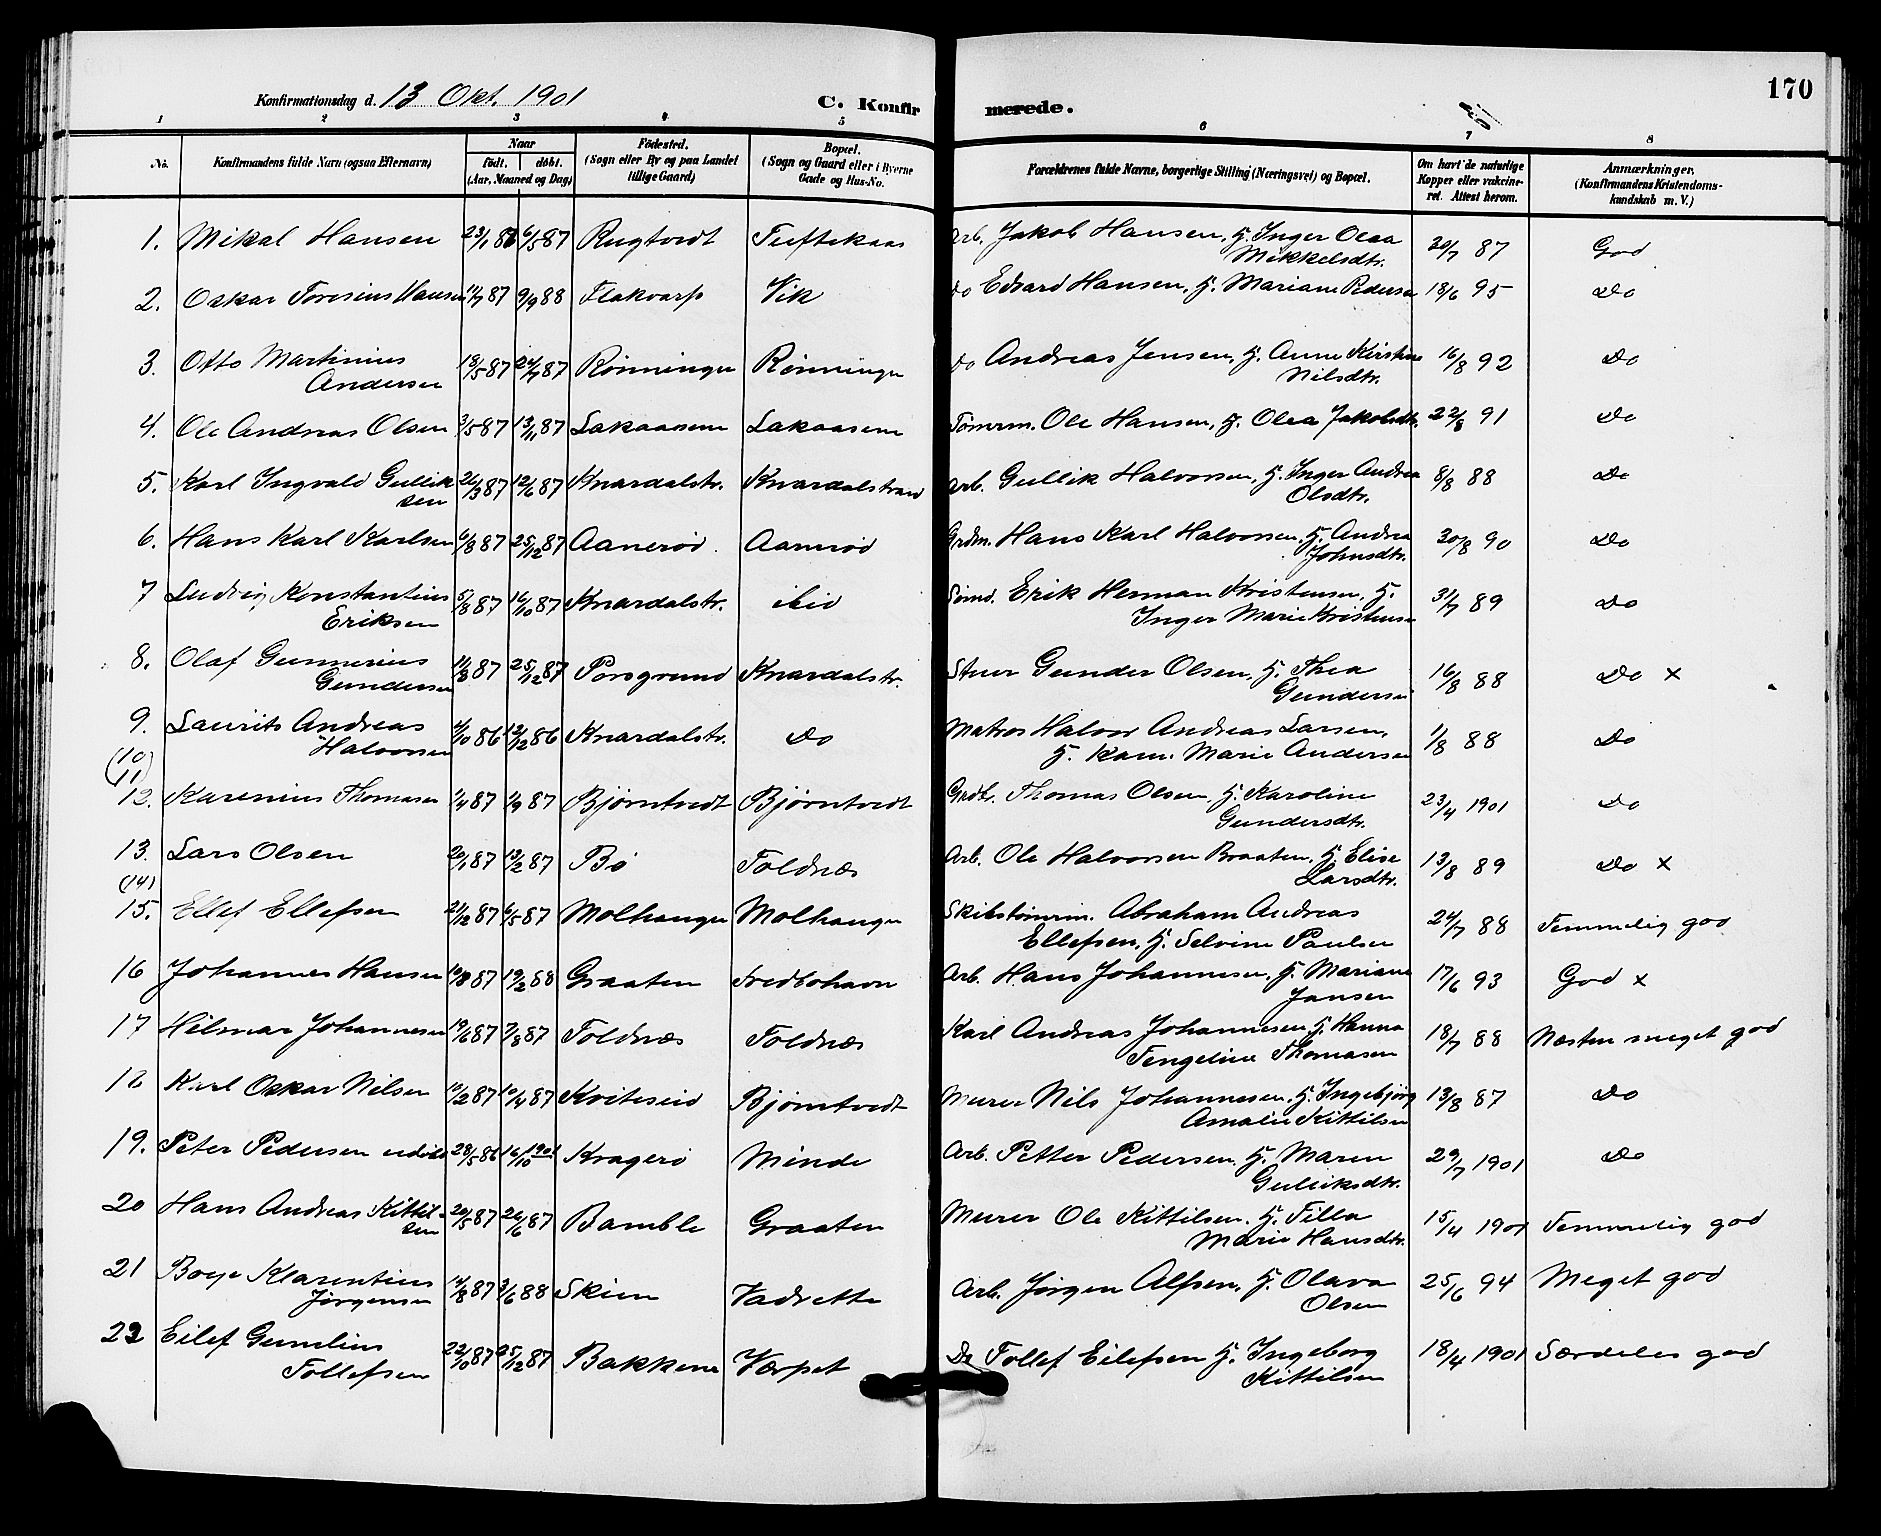 170
Konfirmationsdag d. 13 Okt. 1901 C. Konfir merede.
1 2 3 4 5 6 7 8
No. Konfirmandens fulde Navn (ogsaa Efternavn) Naar født. døbt. (Aar, Maaned og Dag) Fødested. (Sogn eller By og paa Landet tillige Gaard) Bopæl. (Sogn og Gaard eller i Byerne Gade og Hus-No. Forældrenes fulde Navne, borgerlige Stilling (Næringsvei) og Bopæl. Om havt de naturlige Kopper eller vakcineret. Attest herom. Anmærkninger. (Konfirmandens Kristendomskundskab m. V.)
1. Mikal Hansen 23/1 86 6/5 87 Rugtvedt Tuftekaas Arb. Jakob Hansen, H. Inger Olea Mikkelsdtr. 20/7 87 God
2. Oskar Toresius Hansen 11/7 87 9/9 88 Flakvarp Vik do Edvard Hansen, H. Mariane Pedersen 18/6 95 Do
3. Otto Martinius Andersen 18/5 87 24/7 87 Rønningen Rønningen do Andreas Jensen, H. Anne Kirstine Nilsdtr. 16/8 92 Do
4. Ole Andreas Olsen 3/5 87 13/11 87 Lakaasene Lakaasene Tømrm. Ole Hansen, H. Olea Jakobsdtr. 22/8 91 Do
5. Karl Ingvald Gulliksen 26/3 87 12/6 87 Knardalstr. Knardalstrand Arb. Gullik Halvorsen, H. Inger Andrea Olsdtr. 8/8 88 Do
6. Hans Karl Karlsen 6/8 87 25/12 87 Aanerød Aanerød Grdm. Hans Karl Halvorsen, H. Andrea Johnsdtr. 30/8 90 Do
7 Ludvig Konstantius Eriksen 5/8 87 16/10 87 Knardalstr. ibid Sømd. Erik Herman Kristensen, H. Inger Marie Kristensen 31/7 89 Do
8. Olaf Gunnerius Gundersen 11/3 87 25/12 87 Porsgrund Knardalstr. Stuer Gunder Olsen, H. Thea Gundersen 16/8 88 Do ×
9. Laurits Andreas Halvorsen 4/10 86 12/12 86 Knardalstr. Do Matros Halvor Andreas Larsen, H. Karen Marie Andersen 1/8 88 Do
(10)
(11)
12. Karenius Thomasen 1/4 87 1/9 87 Bjørntvedt Bjørntvedt Grdbr. Thomas Olsen, H. Karoline Gundersdtr. 23/4 1901 Do
13. Lars Olsen 20/1 87 13/2 87 Bø Toldnæs Arb. Ole Halvorsen Braaten, H. Elise Larsdtr. 13/8 89 Do ×
(14)
15. Ellef Ellefsen 21/12 87 6/5 87 Molhaugen Molhaugen Skibstømrm. Abraham Andreas Ellefsen, H. Selvine Paulsen 24/7 88 Temmelig god
16 Johannes Hansen 10/8 87 19/2 88 Graaten Fredbohavn Arb. Hans Johannesen, H. Mariane Jansen 17/6 93 God ×
17 Hilmar Johannesen 19/6 87 7/8 87 Toldnæs Toldnæs Karl Andreas Johannesen, H. Hanna Tengeline Thomasen 18/7 88 Næsten meget god
18 Karl Oskar Nilsen 10/2 87 10/4 87 Kviteseid Bjørntvedt Murer Nils Johannesen, H. Ingebjørg Amalie Kittilsen 13/8 87 Do
19. Peter Pedersen 28/5 86 16/10 1901 Kragerø Minde Arb. Petter Pedersen, H. Maren Gulliksdtr. 29/7 1901 Do
20 Hans Andreas Kittilsen 20/5 87 26/6 87 Bamble Graaten Murer Ole Kittilsen, H. Tilla Marie Hansdtr. 15/4 1901 Temmelig god
21 Boye Klarentius Jørgensen 14/8 87 3/6 88 Skien Vadrette Arb. Jørgen Alfsen, H. Olava Olsen 25/6 94 Meget god
22 Eilef Gunelius Tollefsen 22/10 87 25/12 87 Bakkene Værpet Do Tollef Eilefsen H. Ingeborg Kittilsen 18/4 1901 Særdeles god